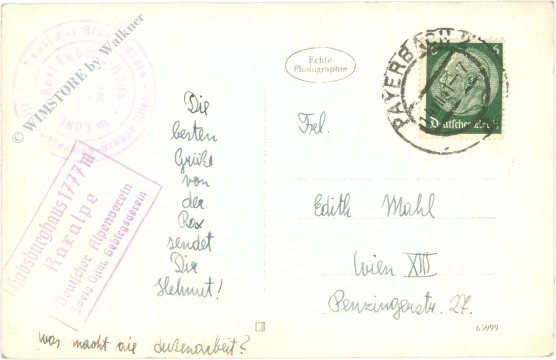 © WIMSTORE by Walkner
Karl Ludwig-Haus
(1803 m)
Habsburghaus 1777 m
Raxalpe
Deutscher Alpenverein
Zweig Ostm. Gebirgsverein
Die
besten
Grüße
von
der
Rax
sendet
Dir
Helmut!
Was macht die
Echte
Photographie
PAYERBACH
6 6
Deutsches Reich
Frl.
Edith Mahl
Wien XIII
Penzingerstr. 27.
65999